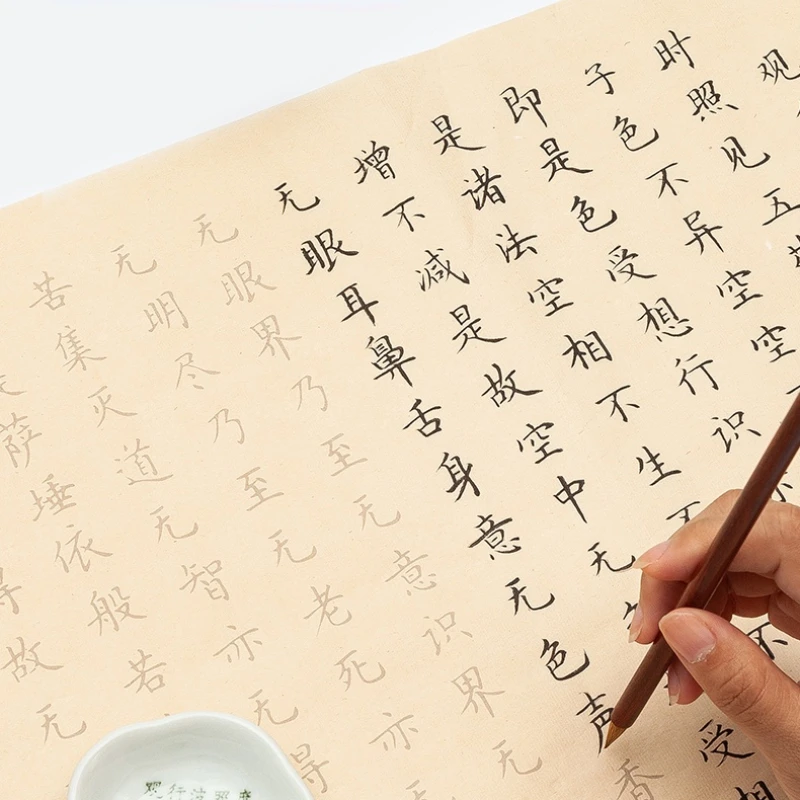 观
时照见五
子色不异空空
即是色受想行识
是诸法空相不生不
增不减是故空中无色受想
无眼耳鼻舌身意无色声香
无眼界乃至无意识界无
无明尽乃至无老死亦
苦集灭道无智亦无得
萨埵依般若
故无